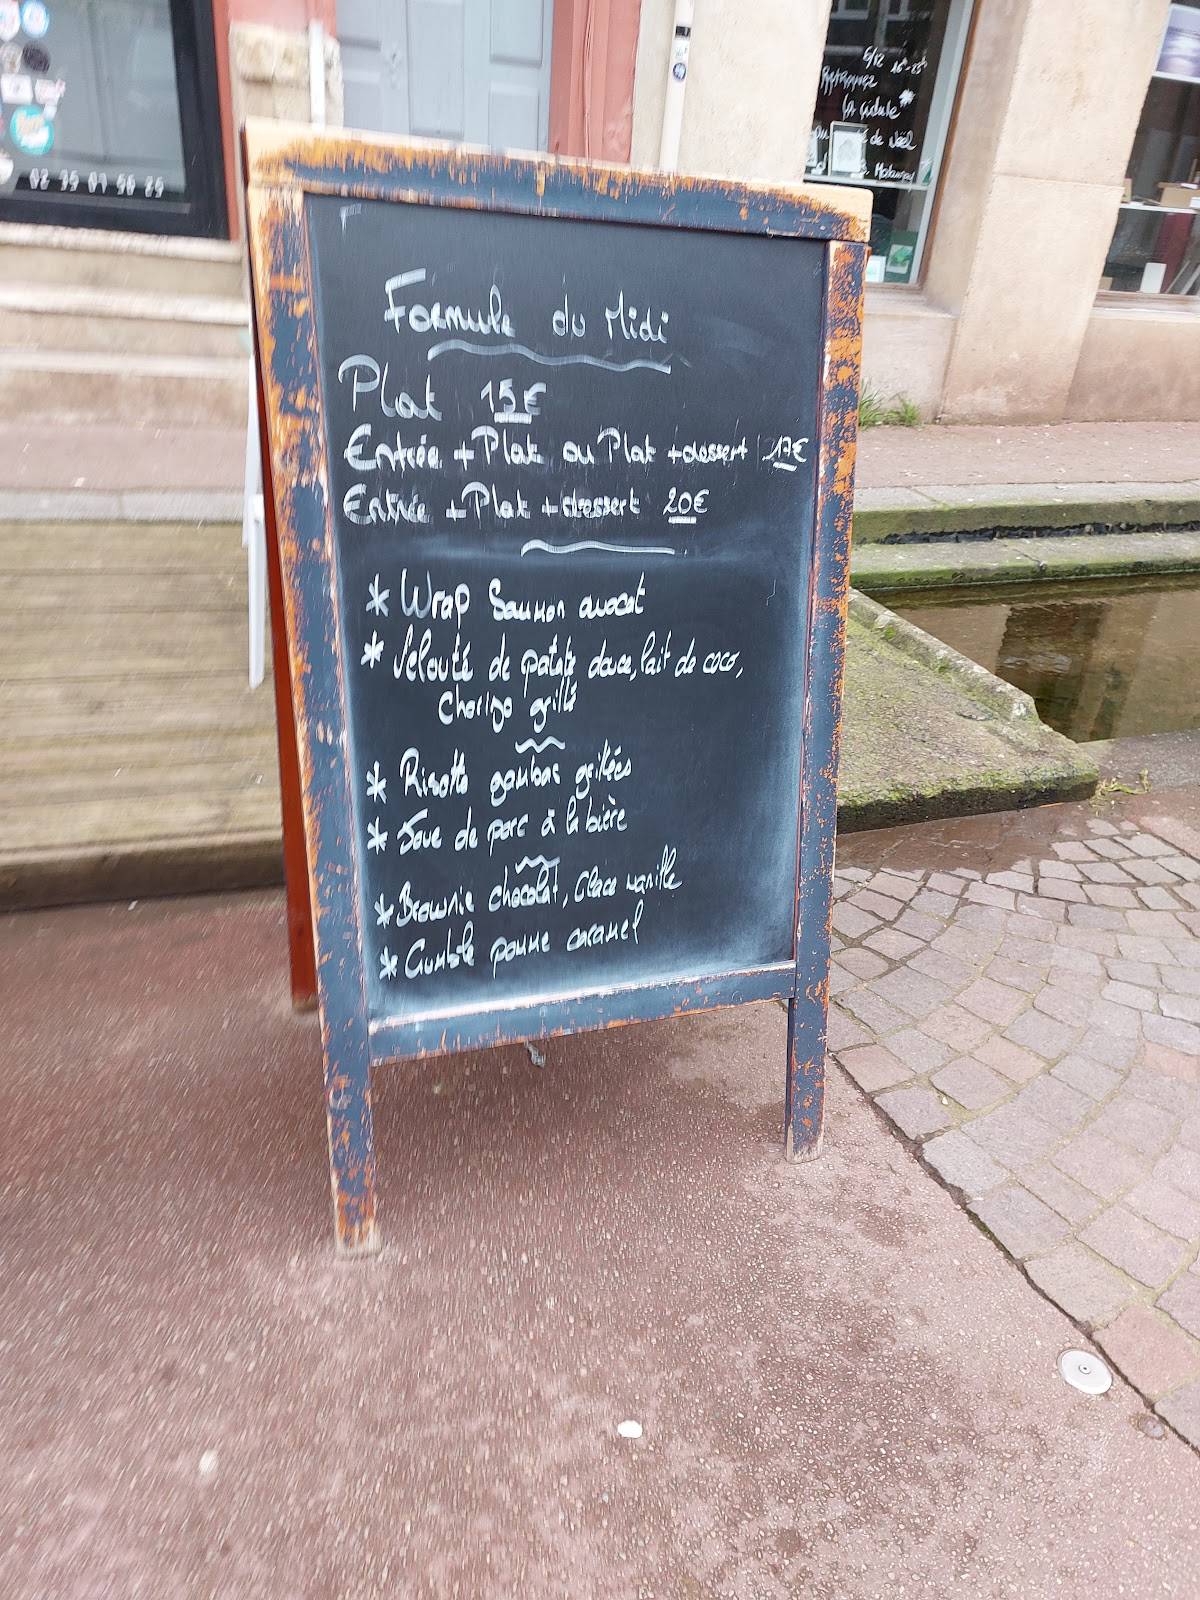 5/12 16h-23h
Retrouvez
la cidule
de Noël
02 35 07 56 25
Formule du Midi
Plat 15€
Entrée + Plat ou Plat + dessert 17€
Entrée + Plat + dessert 20€
* Wrap Saumon avocat
* Velouté de patate douce, lait de coco,
Chorizo grillé
* Risotto gambas grillées
* Joue de porc à la bière
* Brownie chocolat, Glace vanille
* Cumble pomme caramel